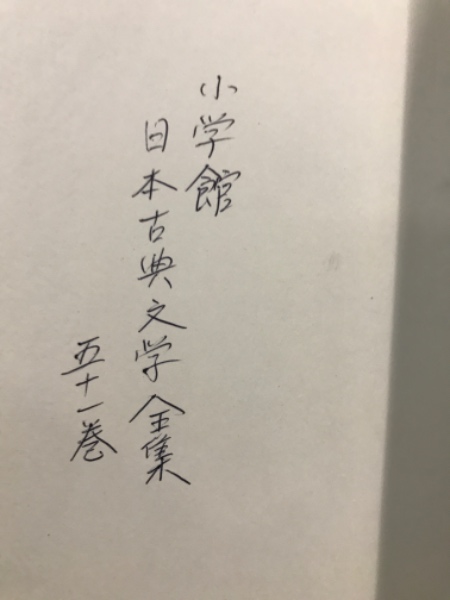 小学館
日本古典文学全集
五十一巻